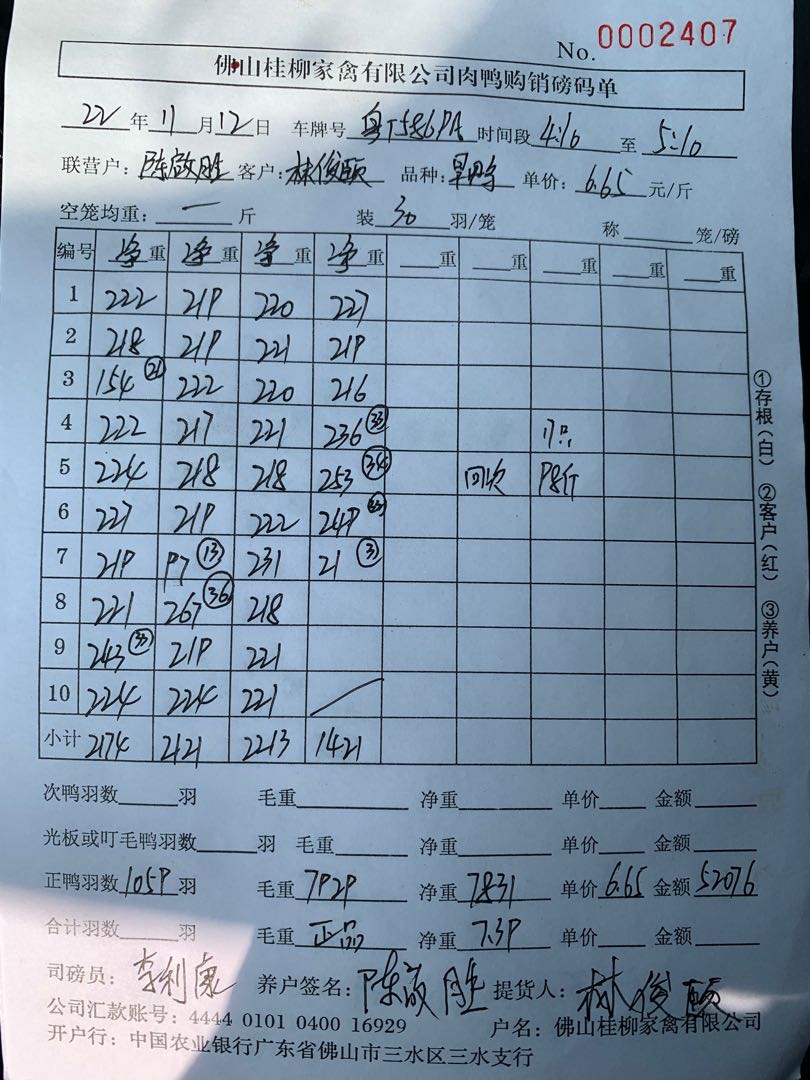 No. 0002407
佛山桂柳家禽有限公司肉鸭购销磅码单
22年11月12日 车牌号 粤T586PA 时间段 4:10 至 5:10
联营户: 陈啟胜 客户: 林俊颐 品种: 旱鸭 单价: 6.65 元/斤
空笼均重: 一 斤 装 30 羽/笼 称 笼/磅
编号 净重 净重 净重 净重 重 重 重 重 重
1 222 219 220 227
2 218 219 221 219
3 154 (21) 222 220 216
4 222 217 221 236 (33) 17只
5 224 218 218 253 (34) 回次 98斤
6 227 219 222 249 (33)
7 219 97 (13) 231 21 (3)
8 221 267 (36) 218
9 243 (33) 219 221
10 224 224 221
小计 2174 2121 2213 1421
次鸭羽数 羽 毛重 净重 单价 金额
光板或叮毛鸭羽数 羽 毛重 净重 单价 金额
正鸭羽数 1059 羽 毛重 7929 净重 7831 单价 6.65 金额 52076
合计羽数 羽 毛重 正品 净重 7.39 单价 金额
司磅员: 李利康 养户签名: 陈啟胜 提货人: 林俊颐
公司汇款账号: 4444 0101 0400 16929 户名: 佛山桂柳家禽有限公司
开户行: 中国农业银行广东省佛山市三水区三水支行
①存根(白) ②客户(红) ③养户(黄)